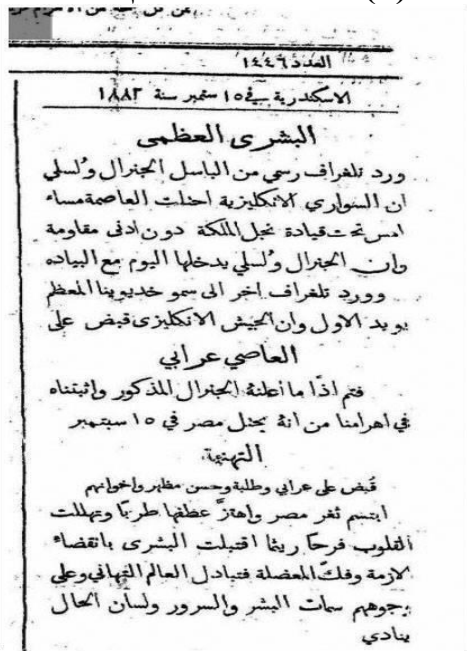 العدد ١٤٤٦
الاسكندرية في ١٥ ستمبر سنة ١٨٨٢
البشرى العظمى
ورد تلغراف رسمي من الباسل الجنرال ولسلي
ان السواري الانكليزية احتلت العاصمة مساء
امس تحت قيادة نجل الملكة دون ادنى مقاومة
وان الجنرال ولسلي يدخلها اليوم مع البياده
وورد تلغراف اخر الى سمو خديوينا المعظم
يويد الاول وان الجيش الانكليزى قبض على
العاصي عرابي
فتم اذًا ما اعلنهُ الجنرال المذكور واثبتناه
في اهرامنا من انهُ يحتل مصر في ١٥ سبتمبر
التهنية
قُبض على عرابي وطلبة وحسن مظهر واخوانهم
ابتسم ثغر مصر واهتزَّ عطفها طربًا وتهللت
القلوب فرحًا ريثما اقتبلت البشرى بانقضاء
الازمة وفكّ المعضلة فتبادل العالم التهاني وعلى
وجوههم سمات البشر والسرور ولسان الحال
ينادي